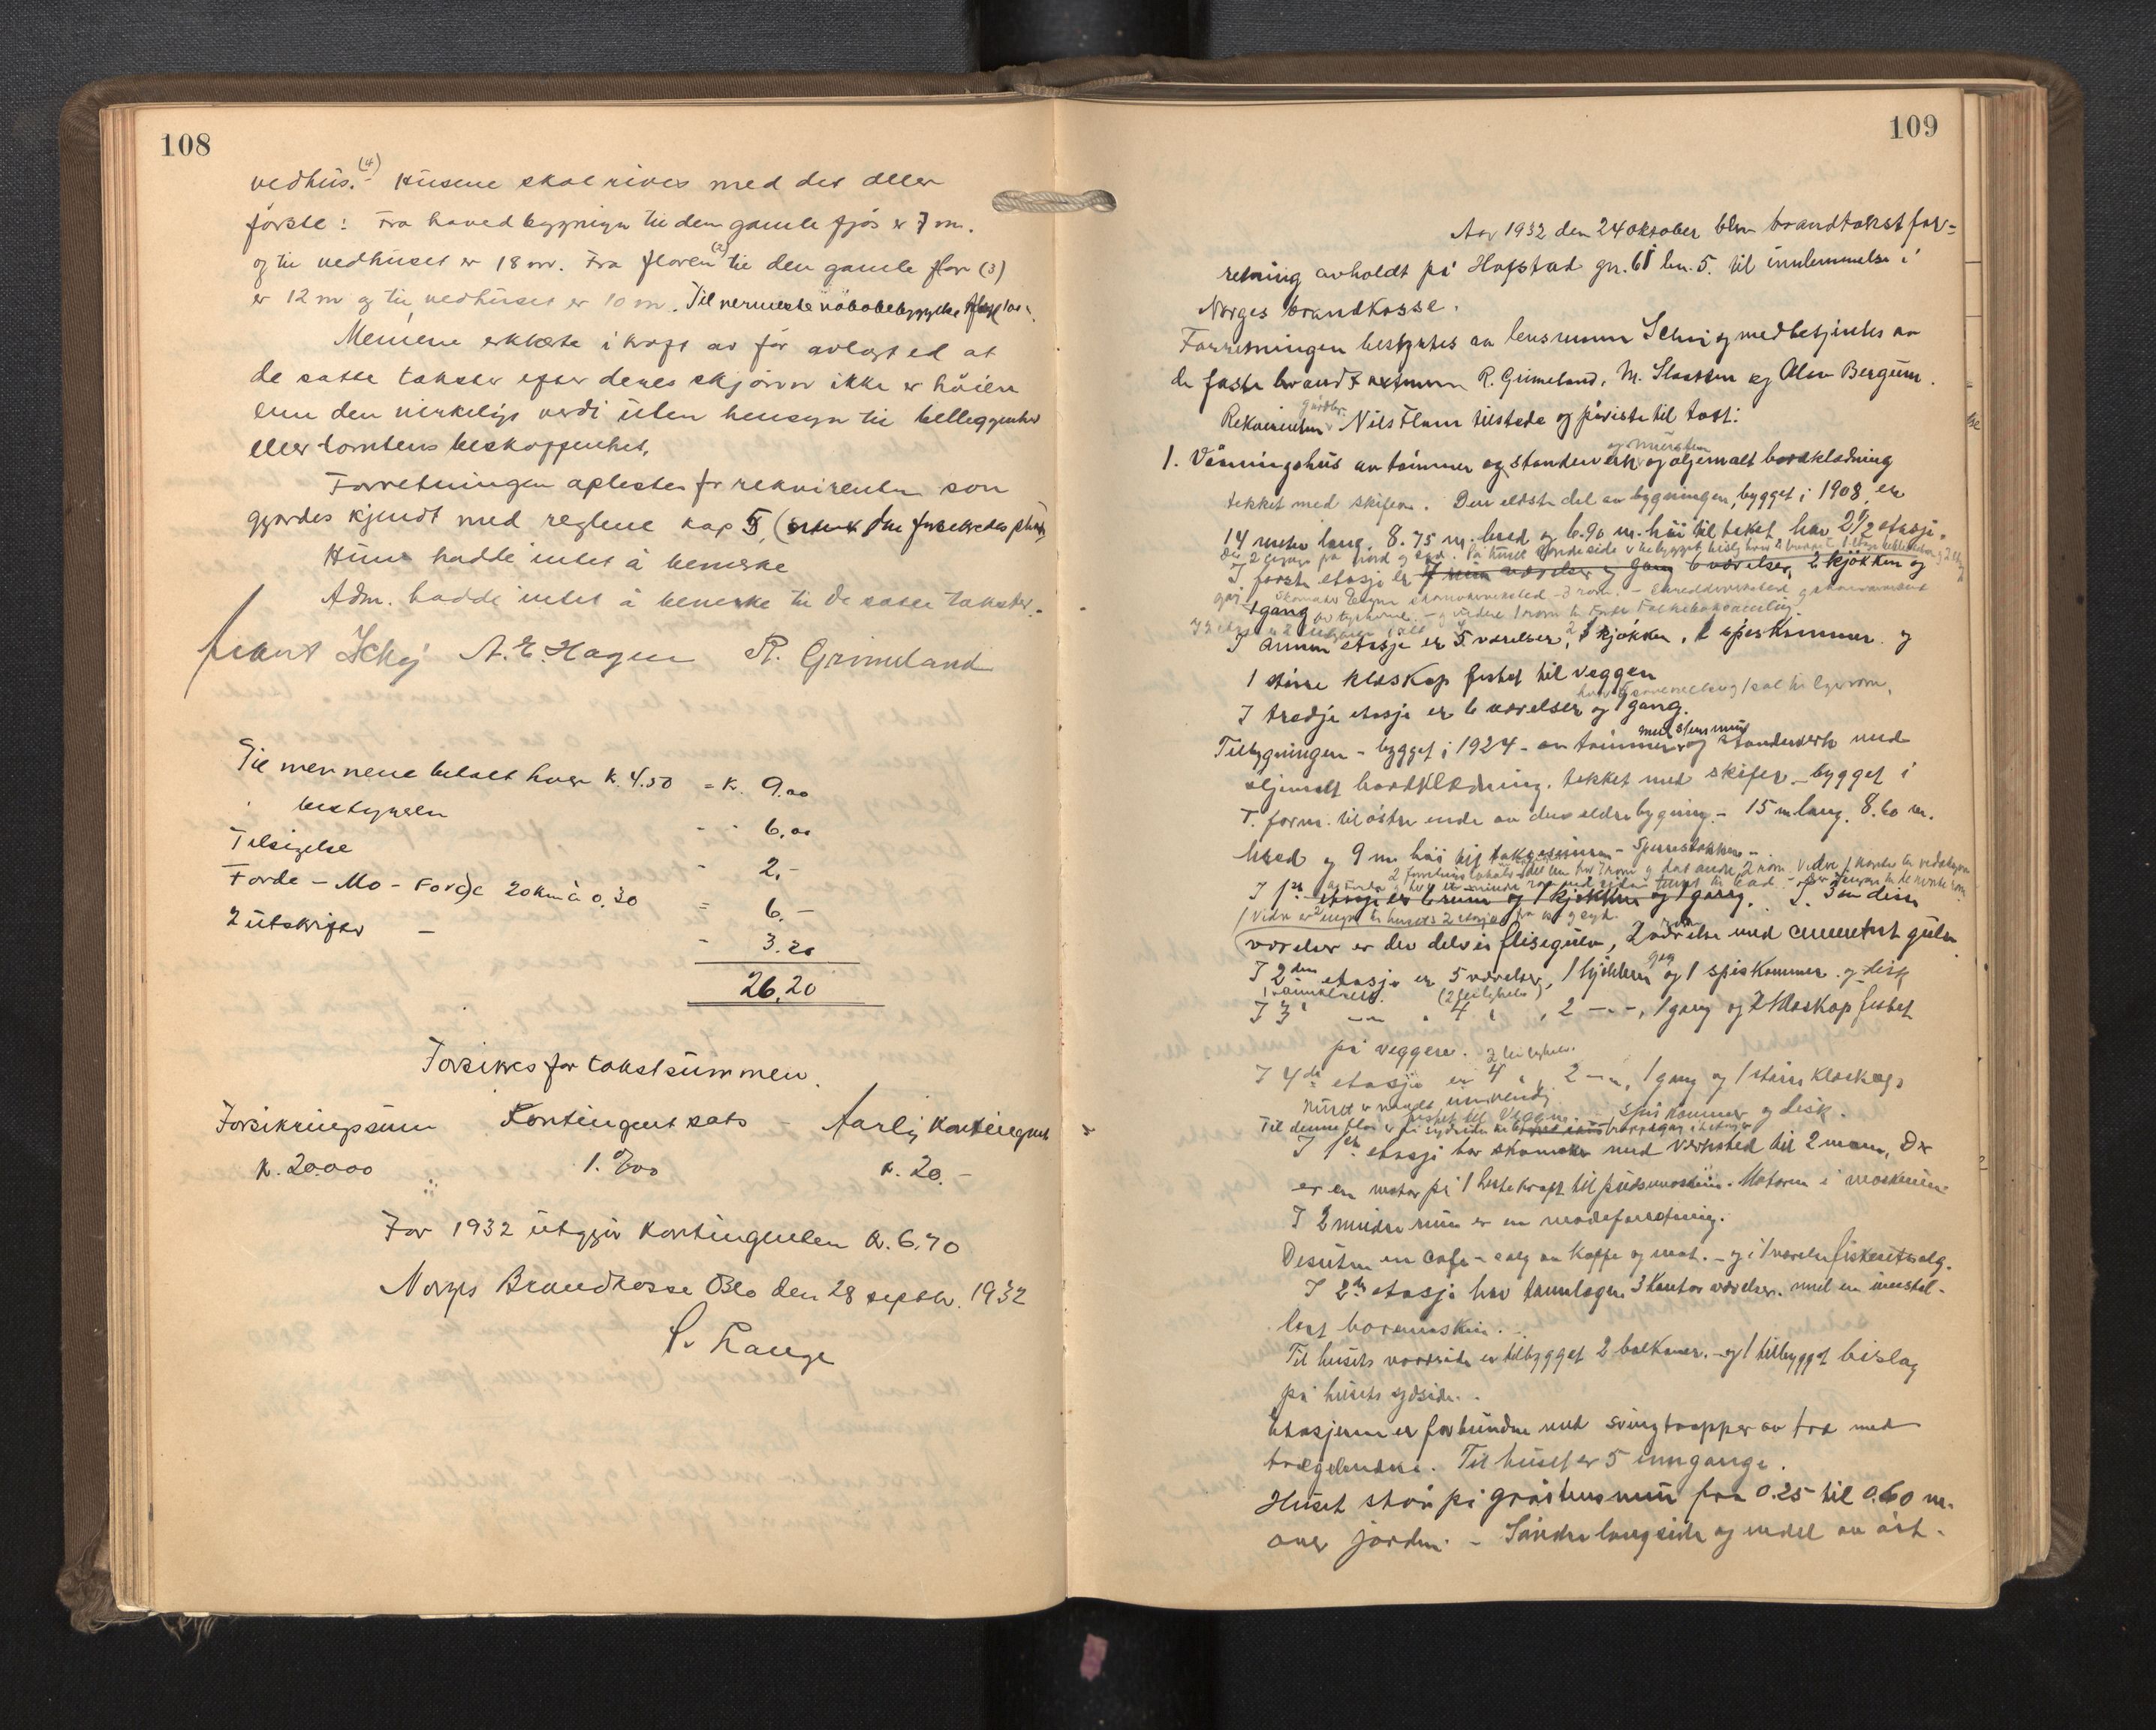 108
vedhus. (4) Husene skal rives med det aller
første: Fra hovedbygningen til den gamle fjøs er 7 m.
og til vedhuset er 18 m. Fra floren (2) til den gamle flor (3)
er 12 m og til vedhuset er 10 m. Til nermeste nabobebyggelse
Mennene erklærte i kraft av før avlagt ed at
de satte takster efter deres skjønn ikke er høiere
enn den virkelige verdi uten hensyn til belleggenhet
eller tomtens beskaffenhet.
Forretningen oplestes for rekvirenten som
gjordes kjendt med reglene kap 5,
Hun hadde intet å bemerke
Adm. hadde intet å bemerke til de satte takster.
A. E. Hagen R. Grimeland
Til mennene betalt hver k. 4.50 = k. 9.00
bestyreren - - 6.00
Tilsigelse - 2.-
Førde - Mo - Førde 20 km à 0.30 = 6.-
2 utskrifter - - 3.20
26.20
Forsikres for takstsummen.
Forsikringssum Kontingentsats - Aarlig Kontingent
k. 20.000 1. %oo k. 20.-
For 1932 utgjør kontingenten k. 6.70
Norges Brandkasse Oslo den 28 septbr. 1932
S. Lange
109
Aar 1932 den 24 oktober blev brandtakstfor-
retning avholdt på Hafstad gn. 61 bn. 5. til innlemmelse i
Norges brandkasse.
Forretningen bestyrtes av lensmann Schei og medbetjentes av
de faste brandtaxtmenn R. Grimeland, M. Slaatten og Olav Bergum.
Rekvirenten gårdbr. Nils Flam tilstede og påviste til takst:
1. Våningshus av tømmer og standerverk og murstein og oljemalt bordklædning
tekket med skifer. Den eldste del av bygningen, bygget i 1908, er
14 meter lang, 8.75 m. bred og 6.90 m. høi til taket, har 2 1/2 etasje.
I første etasje er 7 rum værelser og gang 6 værelser, 2 kjøkken og
1 gang
I annen etasje er 5 værelser, 2 kjøkken, 1 spiskammer og
1 større klæskap festet til veggen
I tredje etasje er 6 værelser og 1 gang.
Tilbygningen - bygget i 1924 - av tømmer og standerverk med stenmur med
oljemalt bordklædning, tekket med skifer - bygget i
T. form til østre ende av den eldre bygning - 15 m lang, 8.60 m.
bred og 9 m høi til takgesimsen - Sperrestokkene -
I 1ste etasje er 6 rum og 1 kjøkken og 1 gang. I 3 av disse
værelser er der delvis flisegulv, 2 værelse med cementert gulv
I 2den etasje er 5 værelser, 1 kjøkken og 1 spiskammer og disk
I 3 - - 4 (2 leiligheter), 2 - - -, 1 gang og 2 klæskap festet
på veggene. 2 leiligheter.
I 4de etasje er 4 " , 2 - -, 1 gang og 1 større klæskap
festet til veggene. - spiskammer og disk.
I 1ste etasje har skomaker med verksted til 2 mann. Der
er en motor på 1 hestekraft til pudsmaskin. Motoren i maskinen.
I 2 mindre rum er en modeforretning.
Desuten en café - salg av kaffe og mat. - og i 1 værelse fiskeutsalg.
I 2den etasje har tannlægen 3 kontorværelser med en instal-
lert boremaskin.
Til husets nordside er tilbygget 2 balkoner. - og 1 tilbygget bislag
på husets sydside.
Etasjerne er forbundne med svingtrapper av træ med
trægelendre. Til huset er 5 innganger.
Huset står på gråstensmur fra 0.25 til 0.60 m.
over jorden. - Søndre langside og endel av øst-